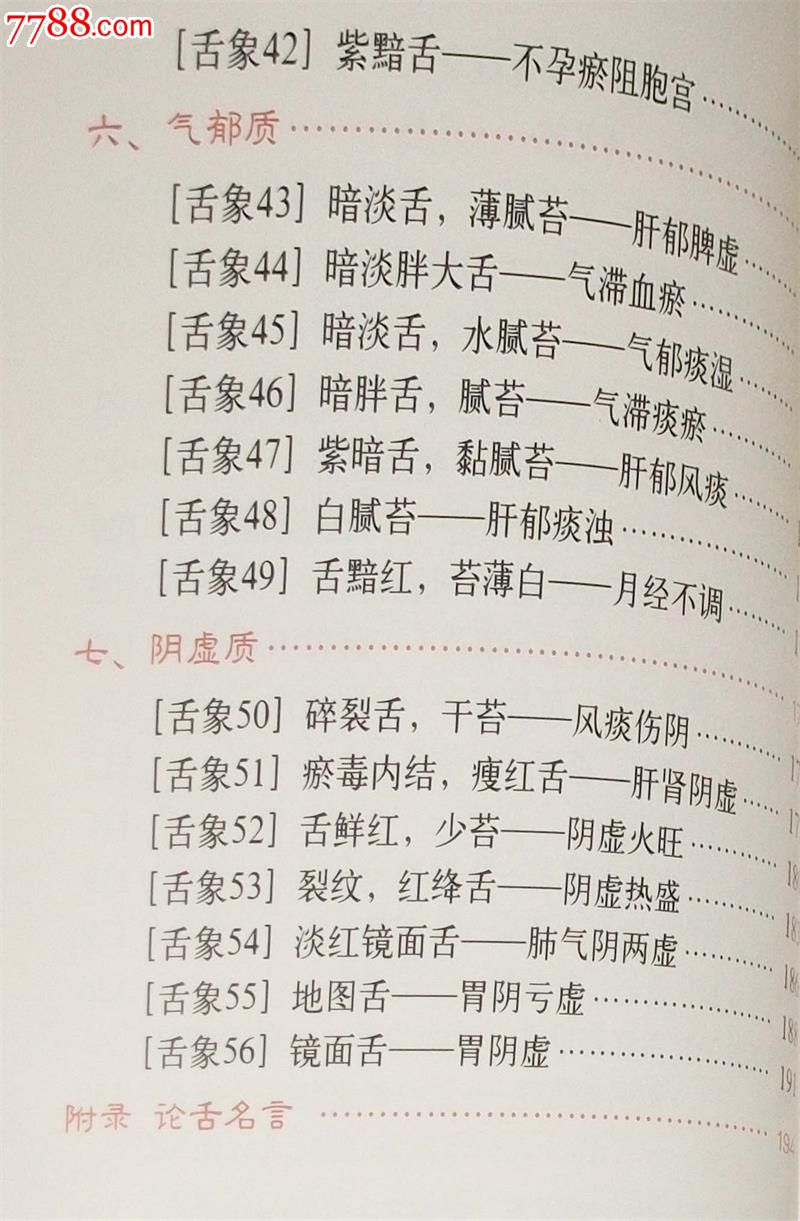 7788.com
[舌象42] 紫黯舌——不孕瘀阻胞宫……
六、气郁质……
[舌象43] 暗淡舌，薄腻苔——肝郁脾虚……
[舌象44] 暗淡胖大舌——气滞血瘀……
[舌象45] 暗淡舌，水腻苔——气郁痰湿……
[舌象46] 暗胖舌，腻苔——气滞痰瘀……
[舌象47] 紫暗舌，黏腻苔——肝郁风痰……
[舌象48] 白腻苔——肝郁痰浊……
[舌象49] 舌黯红，苔薄白——月经不调……
七、阴虚质……
[舌象50] 碎裂舌，干苔——风痰伤阴……
[舌象51] 瘀毒内结，瘦红舌——肝肾阴虚……
[舌象52] 舌鲜红，少苔——阴虚火旺……
[舌象53] 裂纹，红绛舌——阴虚热盛……
[舌象54] 淡红镜面舌——肺气阴两虚……186
[舌象55] 地图舌——胃阴亏虚……188
[舌象56] 镜面舌——胃阴虚……191
附录 论舌名言……194